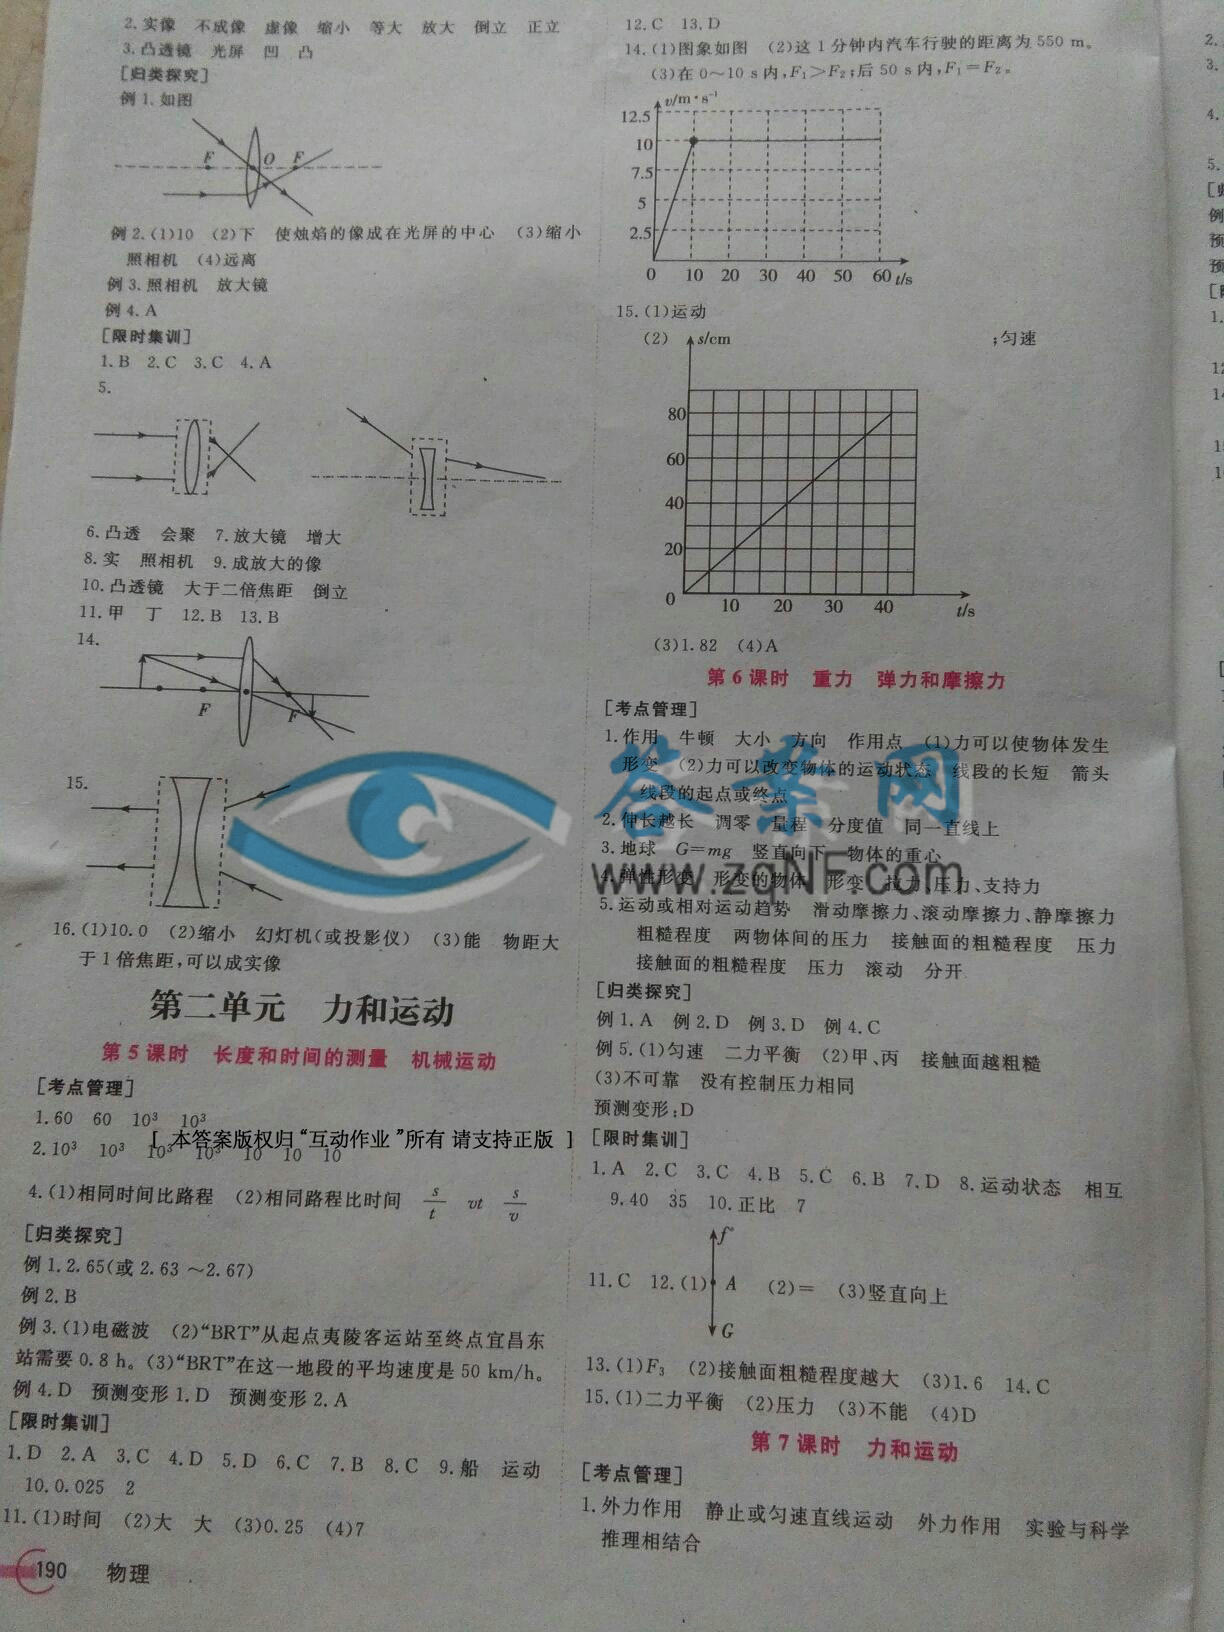 2.实像 不成像 虚像 缩小 等大 放大 倒立 正立
3.凸透镜 光屏 凹 凸
[归类探究]
例1.如图
F O F
例2.(1)10 (2)下 使烛焰的像成在光屏的中心 (3)缩小
照相机 (4)远离
例3.照相机 放大镜
例4.A
[限时集训]
1.B 2.C 3.C 4.A
5.
6.凸透 会聚 7.放大镜 增大
8.实 照相机 9.成放大的像
10.凸透镜 大于二倍焦距 倒立
11.甲 丁 12.B 13.B
14.
F F
15.
16.(1)10.0 (2)缩小 幻灯机(或投影仪) (3)能 物距大
于1倍焦距,可以成实像
第二单元 力和运动
第5课时 长度和时间的测量 机械运动
[考点管理]
1.60 60 10³ 10³
2.10³ 10³ 10³ 10³ 10 10 10
[ 本答案版权归“互动作业”所有 请支持正版 ]
4.(1)相同时间比路程 (2)相同路程比时间 s/t vt s/v
[归类探究]
例1.2.65(或2.63~2.67)
例2.B
例3.(1)电磁波 (2)“BRT”从起点夷陵客运站至终点宜昌东
站需要0.8 h。(3)“BRT”在这一地段的平均速度是50 km/h。
例4.D 预测变形1.D 预测变形2.A
[限时集训]
1.D 2.A 3.C 4.D 5.D 6.C 7.B 8.C 9.船 运动
10.0.025 2
11.(1)时间 (2)大 大 (3)0.25 (4)7
190 物理
12.C 13.D
14.(1)图象如图 (2)这1分钟内汽车行驶的距离为550 m。
(3)在0~10 s内,F₁>F₂;后50 s内,F₁=F₂。
v/m·s⁻¹
12.5
10
7.5
5
2.5
0 10 20 30 40 50 60 t/s
15.(1)运动
(2) s/cm ;匀速
80
60
40
20
0 10 20 30 40 t/s
(3)1.82 (4)A
第6课时 重力 弹力和摩擦力
[考点管理]
1.作用 牛顿 大小 方向 作用点 (1)力可以使物体发生
形变 (2)力可以改变物体的运动状态 线段的长短 箭头
线段的起点或终点
2.伸长越长 调零 量程 分度值 同一直线上
3.地球 G=mg 竖直向下 物体的重心
4.弹性形变 形变的物体 形变 拉力、压力、支持力
5.运动或相对运动趋势 滑动摩擦力、滚动摩擦力、静摩擦力
粗糙程度 两物体间的压力 接触面的粗糙程度 压力
接触面的粗糙程度 压力 滚动 分开
答案网
www.zqNF.com
[归类探究]
例1.A 例2.D 例3.D 例4.C
例5.(1)匀速 二力平衡 (2)甲、丙 接触面越粗糙
(3)不可靠 没有控制压力相同
预测变形:D
[限时集训]
1.A 2.C 3.C 4.B 5.C 6.B 7.D 8.运动状态 相互
9.40 35 10.正比 7
f
11.C 12.(1) A (2)= (3)竖直向上
G
13.(1)F₃ (2)接触面粗糙程度越大 (3)1.6 14.C
15.(1)二力平衡 (2)压力 (3)不能 (4)D
第7课时 力和运动
[考点管理]
1.外力作用 静止或匀速直线运动 外力作用 实验与科学
推理相结合